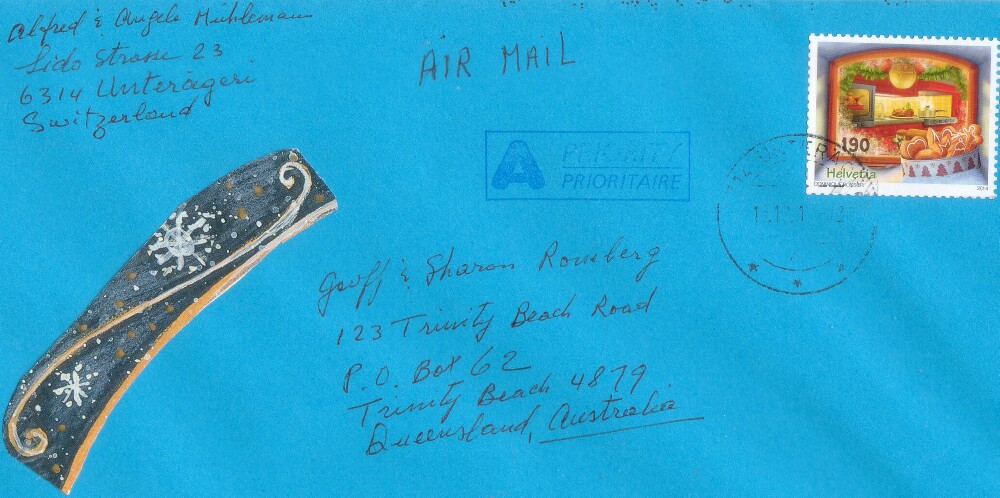 Alfred & Angela Mühlemann
Lido Strasse 23
6314 Unterägeri
Switzerland
AIR MAIL
A PRIORITY
PRIORITAIRE
190
Helvetia
2014
Geoff & Sharon Romberg
123 Trinity Beach Road
P.O. Box 62
Trinity Beach 4879
Queensland, Australia